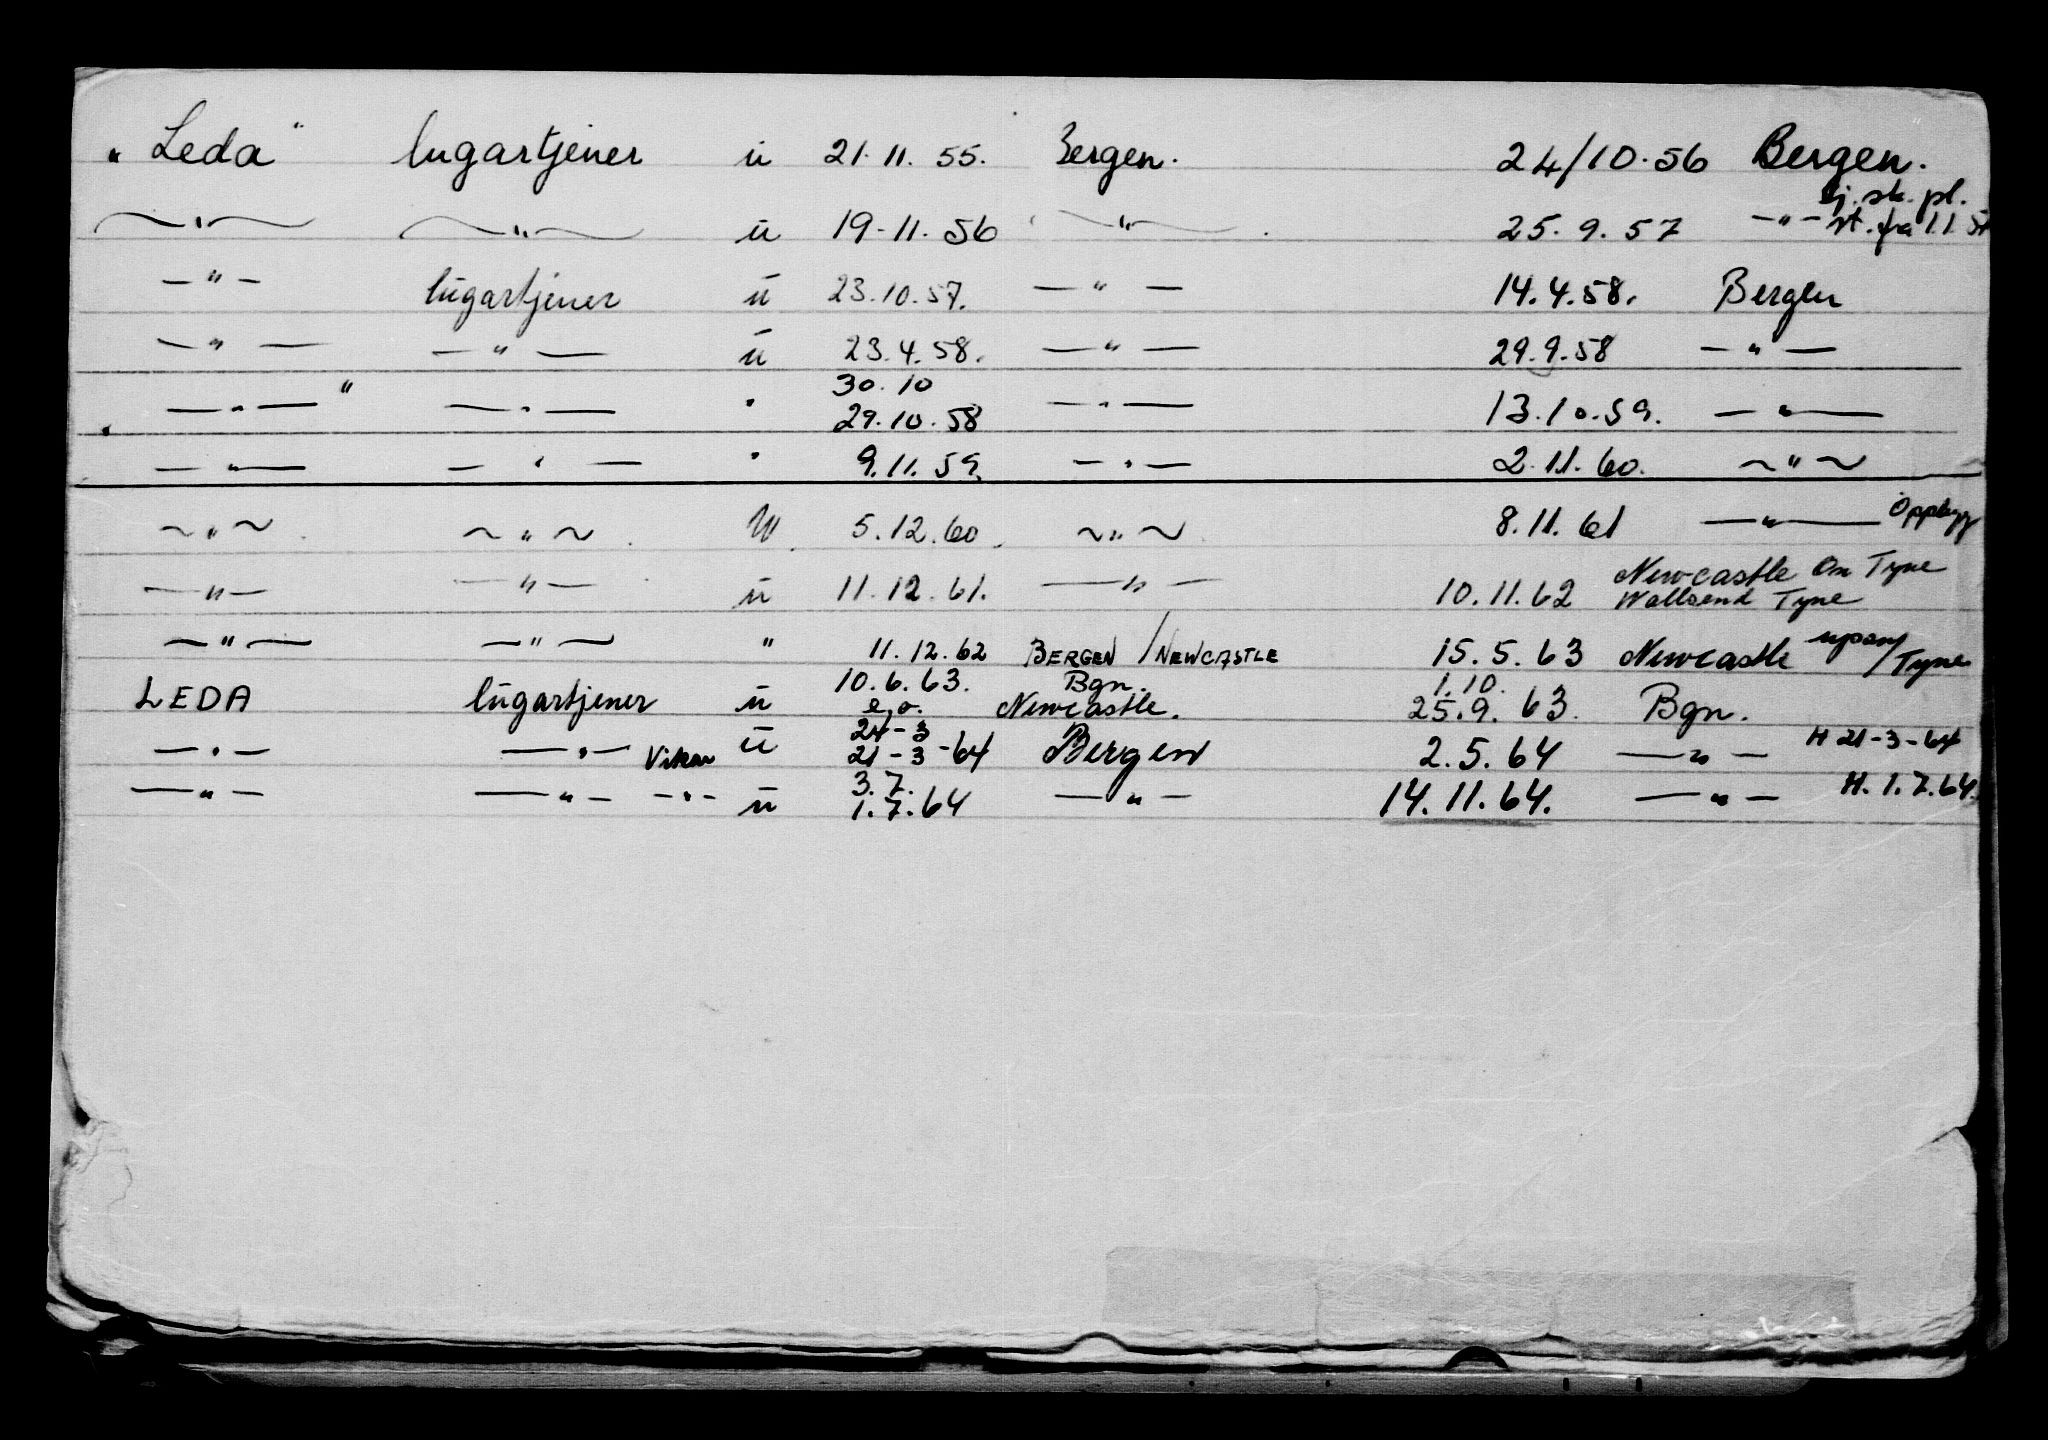 "Leda" lugartjener u 21.11.55. Bergen. 24/10.56 Bergen.
ej. sk. pl.
—"— —"— u 19-11.56 —"— . 25.9.57 —"— st. fra 1.1.
—"— lugartjener u 23.10.57. —"— 14.4.58. Bergen
—"— —"— u 23.4.58. —"— 29.9.58 —"—
30.10
—"— " —"— " 29.10.58 —"— 13.10.59. —"—
—"— —"— " 9.11.59. —"— 2.11.60. —"—
~"~ ~"~ u. 5.12.60. ~"~ 8.11.61 —"— Oppbygg
Newcastle On Tyne
—"— —"— u 11.12.61. —"— 10.11.62 Wallsend Tyne
—"— —"— " 11.12.62 BERGEN / NEWCASTLE 15.5.63 Newcastle upon / Tyne
10.6.63. Bgn. 1.10.
LEDA lugartjener u e.o. Newcastle. 25.9.63. Bgn.
24-3
—"— —"— Vikar u 21-3-64 Bergen 2.5.64 —"— H 21-3-64
3.7.
—"— —"— —"— u 1.7.64 —"— 14.11.64. —"— H. 1.7.64.